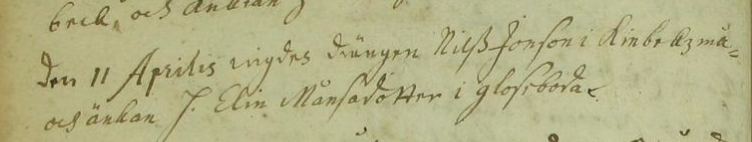 beck, och änkian
Den 11 Aprilis wigdes drängen Nilß Jonson i Kinbekzmå-
och änkan H. Elin Månsadotter i Gloseboda.